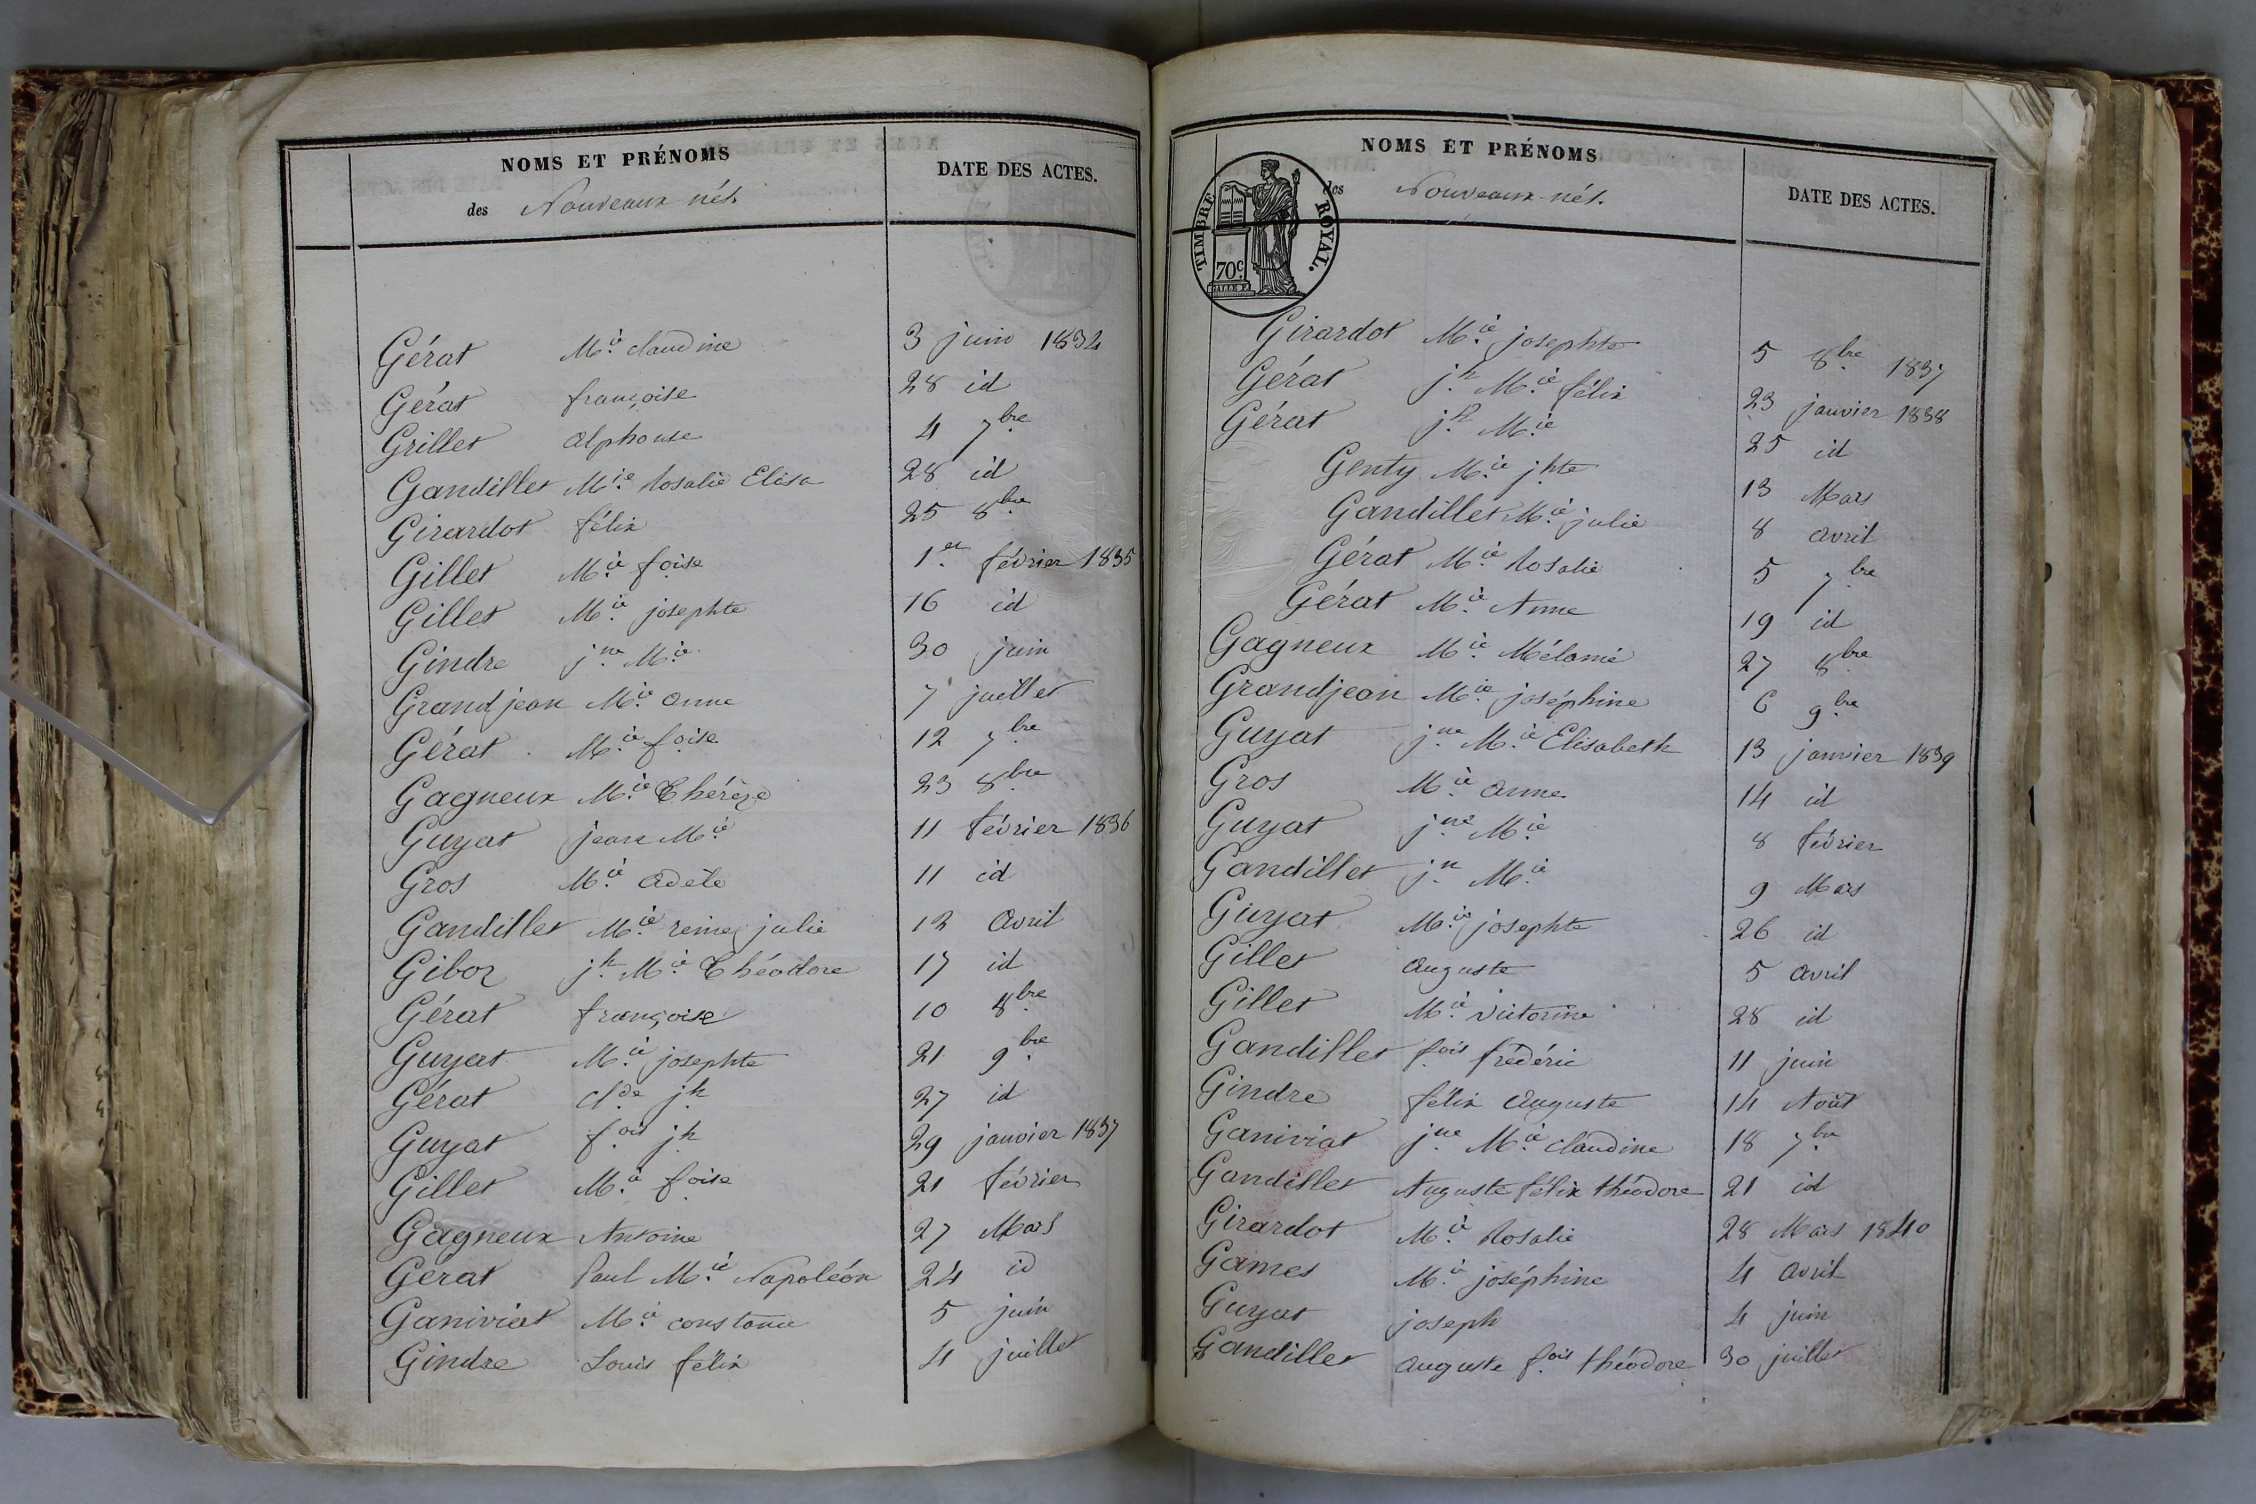 NOMS ET PRÉNOMS
DATE DES ACTES.
des Nouveaux-nés.
Gérat Mie claudine 3 juin 1834
Gérat françoise 28 id
Grillet alphonse 4 7bre
Gandillet Mie Rosalie Elisa 28 id
Girardot félix 25 8bre
Gillet Mie foise 1er février 1835
Gillet Mie josephte 16 id
Gindre jne Mie 30 juin
Grandjean Mie anne 7 juillet
Gérat Mie foise 12 7bre
Gagneux Mie Thérèze 23 8bre
Guyat jean Mie 11 février 1836
Gros Mie adèle 11 id
Gandillet Mie reine julie 12 avril
Giboz jh Mie Théodore 17 id
Gérat françoise 10 8bre
Guyat Mie josephte 21 9bre
Gérat clde jh 27 id
Guyat fois jh 29 janvier 1837
Gillet Mie foise 21 février
Gagneux Antoine 27 Mars
Gérat Paul Mie Napoléon 24 id
Ganiviat Mie constance 5 juin
Gindre Louis félix 4 juillet
NOMS ET PRÉNOMS
DATE DES ACTES.
des Nouveaux-nés.
TIMBRE ROYAL.
70c
Girardot Mie josephte 5 8bre 1837
Gérat jh Mie félix 23 janvier 1838
Gérat jh Mie 25 id
Genty Mie jhte 13 Mars
Gandillet Mie julie 8 avril
Gérat Mie Rosalie 5 7bre
Gérat Mie Anne 19 id
Gagneux Mie Mélanie 27 8bre
Grandjean Mie joséphine 6 9bre
Guyat jne Mie Elisabeth 13 janvier 1839
Gros Mie anne 14 id
Guyat jne Mie 8 février
Gandillet jn Mie 9 Mars
Guyat Mie josephte 26 id
Gillet auguste 5 avril
Gillet Mie victorine 28 id
Gandillet fois frédéric 11 juin
Gindre félix auguste 14 Août
Ganiviat jne Mie claudine 18 7bre
Gandillet Auguste félix théodore 21 id
Girardot Mie Rosalie 28 Mars 1840
Games Mie joséphine 4 avril
Guyat joseph 4 juin
Gandillet auguste fois théodore 30 juillet